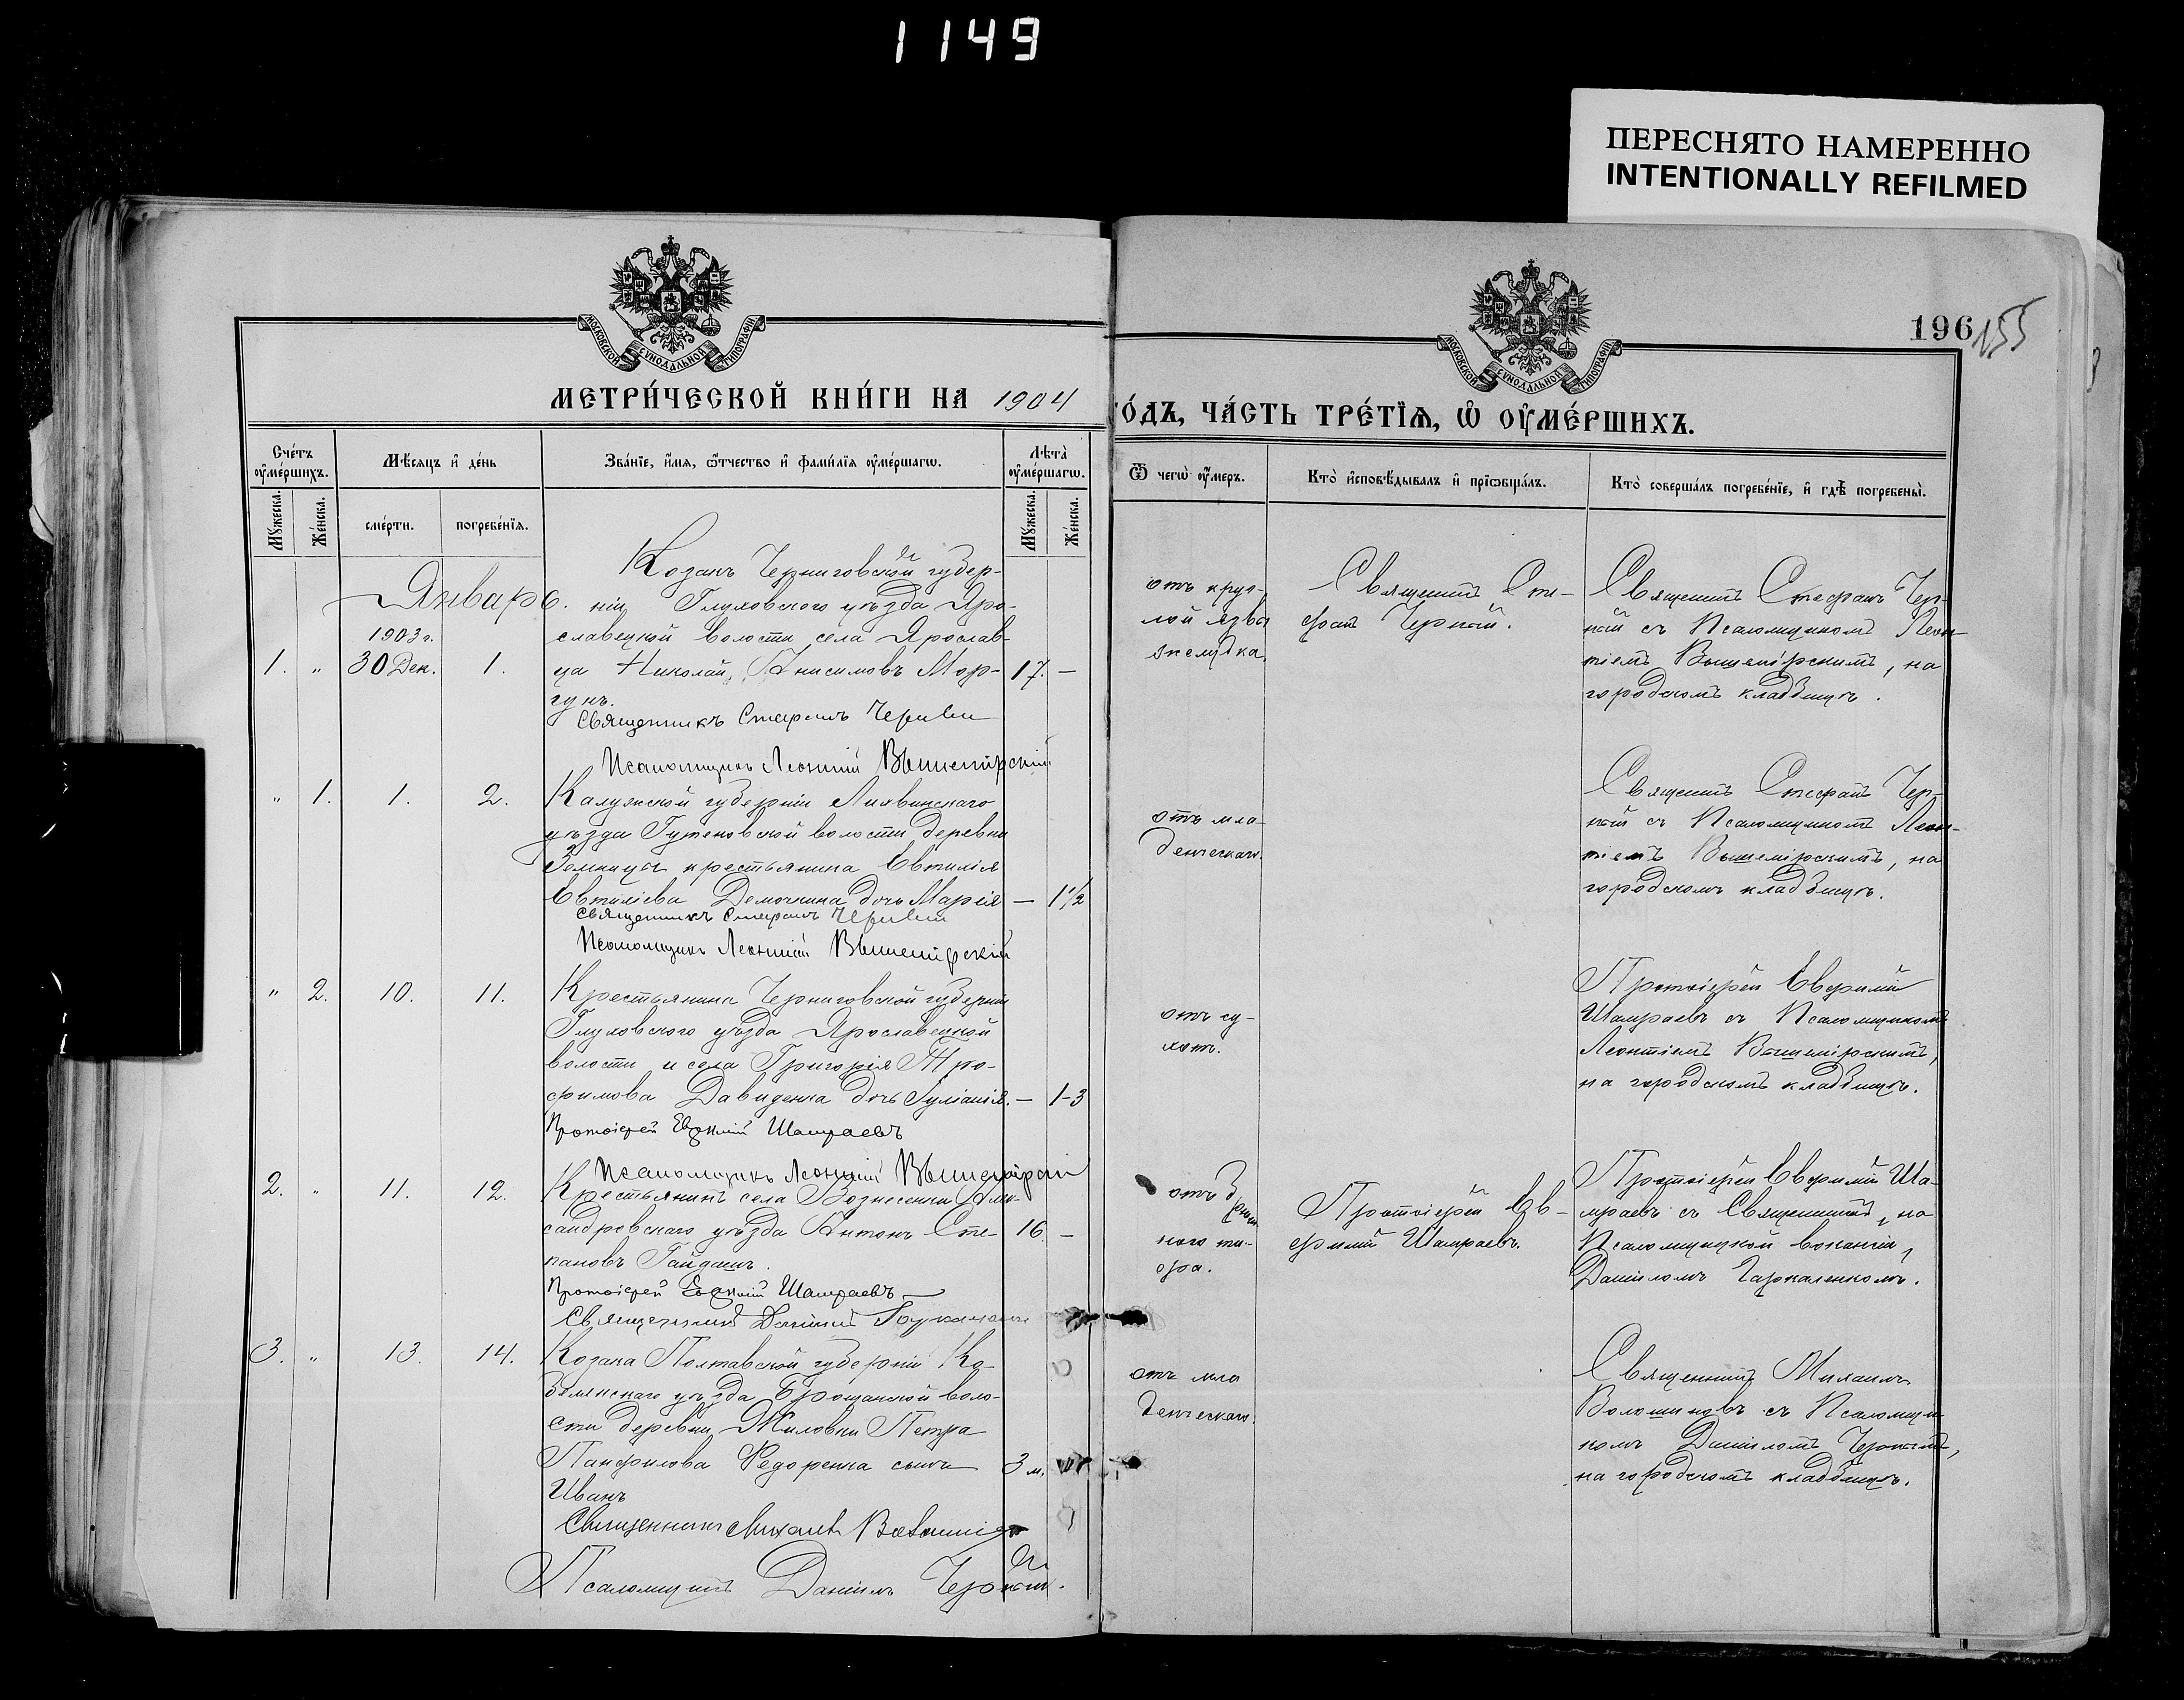 1149
ПЕРЕСНЯТО НАМЕРЕННО
INTENTIONALLY REFILMED
196
155
МОСКОВСКОЙ СУНОДАЛЬНОЙ ТИПОГРАФІИ
МОСКОВСКОЙ СУНОДАЛЬНОЙ ТИПОГРАФІИ
МЕТРИ́ЧЕСКОЙ КНИ́ГИ НА 1904
ГО́ДЪ, ЧА́СТЬ ТРЕ́ТЇѦ, Ѡ҆ ОУ҆МЕ́РШИХЪ.
Сче́тъ оу҆ме́ршихъ.
Мꙋжеска.
Же́нска.
Мѣ́сѧцъ и҆ де́нь
сме́рти.
погребе́нїѧ.
Зва́нїе, и҆́мѧ, ѻ҆́тчество и҆ фами́лїѧ оу҆ме́ршагѡ.
Лѣ́та̀ оу҆ме́ршагѡ.
Мꙋжеска.
Же́нска.
Ѿ чегѡ̀ оу҆́меръ.
Кто̀ и҆сповѣ́дывалъ и҆ прїѡбща́лъ.
Кто̀ соверша́лъ погребе́нїе, и҆ гдѣ̀ погребены̀.
Январь.
1903 г.
1. " 30 Дек. 1.
Козакъ Черниговской губер-
ніи Глуховского уѣзда Яро-
славецкой волости села Ярослав-
ца Николай Анисимовъ Мор-
гунъ. 17. —
Священникъ Стефанъ Черный
Псаломщикъ Леонтій Вышемірскій
отъ круг-
лой язвы
желудка.
Священникъ Сте-
фанъ Черный.
Священникъ Стефанъ Чер-
ный съ Псаломщикомъ Леон-
тіемъ Вышемірскимъ, на
городскомъ кладбищѣ.
" 1. 1. 2.
Калужской губерніи Лихвинскаго
уѣзда волости деревни
крестьянина Евтихія
Евтихіева Демочкина дочь Марія — 1½
Священникъ Стефанъ Черный
Псаломщикъ Леонтій Вышемірскій
отъ мла-
денческаго.
Священникъ Стефанъ Чер-
ный съ Псаломщикомъ Леон-
тіемъ Вышемірскимъ, на
городскомъ кладбищѣ.
" 2. 10. 11.
Крестьянина Черниговской губерніи
Глуховского уѣзда Ярославецкой
волости и села Григорія Тро-
фимова Давиденка дочь Іуліанія. — 1-3
Протоіерей Евфимій Шамраевъ
Псаломщикъ Леонтій Вышемірскій
отъ су-
хот.
Протоіерей Евфимій
Шамраевъ съ Псаломщикомъ
Леонтіемъ Вышемірскимъ,
на городскомъ кладбищѣ.
2. " 11. 12.
Крестьянинъ села Вознесенки Алек-
сандровскаго уѣзда Антонъ Сте-
пановъ Гайдашъ. 16. —
Протоіерей Евфимій Шамраевъ
Священникъ Даніилъ
отъ брюш
ного ти-
фа.
Протоіерей Ев-
фимій Шамраевъ.
Протоіерей Евфимій Ша-
мраевъ съ Священникомъ, на
Псаломщицкой вакансіи,
Даніиломъ Гаркаленкомъ.
3. " 13. 14.
Козака Полтавской губерніи Ко-
белякскаго уѣзда воло-
сти деревни Жиловки Петра
Панфилова Федоренка сынъ 3 м.
Иванъ
Священникъ Михаилъ Волошиновъ
Псаломщикъ Даніилъ Черный.
отъ мла
денческаго.
Священникъ Михаилъ
Волошиновъ съ Псаломщи-
комъ Даніиломъ Чернымъ,
на городскомъ кладбищѣ.